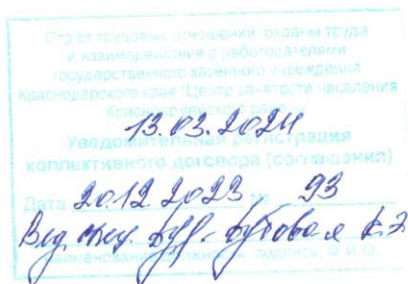 Отдел трудовых отношений, охраны труда
и взаимодействия с работодателями
государственного казенного учреждения
Краснодарского края "Центр занятости населения
района"
13.03.2024
Уведомительная регистрация
коллективного договора (соглашения)
Дата 20.12.2023 № 93
Вед. инсп.
наименование должности, подпись, Ф.И.О.